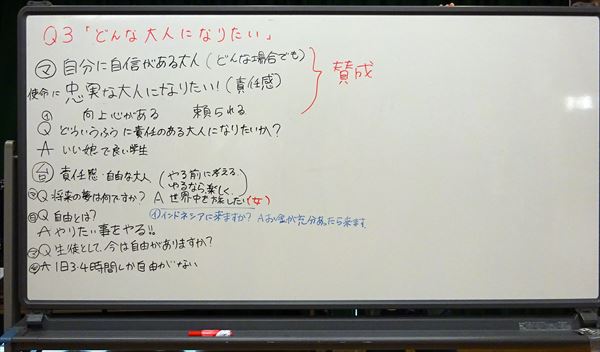 Q3「どんな大人になりたい」
㋮ 自分に自信がある大人(どんな場合でも)
使命に 忠実な大人になりたい!(責任感)
賛成
向上心がある 頼られる
Q どういうふうに責任のある大人になりたいか?
A いい娘で良い学生
㊂ 責任感・自由な大人 (やる前に考える
やるなら、楽しく)
Q 将来の夢は何ですか? A 世界中を旅したい(女)
Q 自由とは? ㋑インドネシアに来ますか? Aお金が充分あったら来ます
A やりたい事をやる!!
Q 生徒として、今は自由がありますか?
A 1日3・4時間しか自由がない